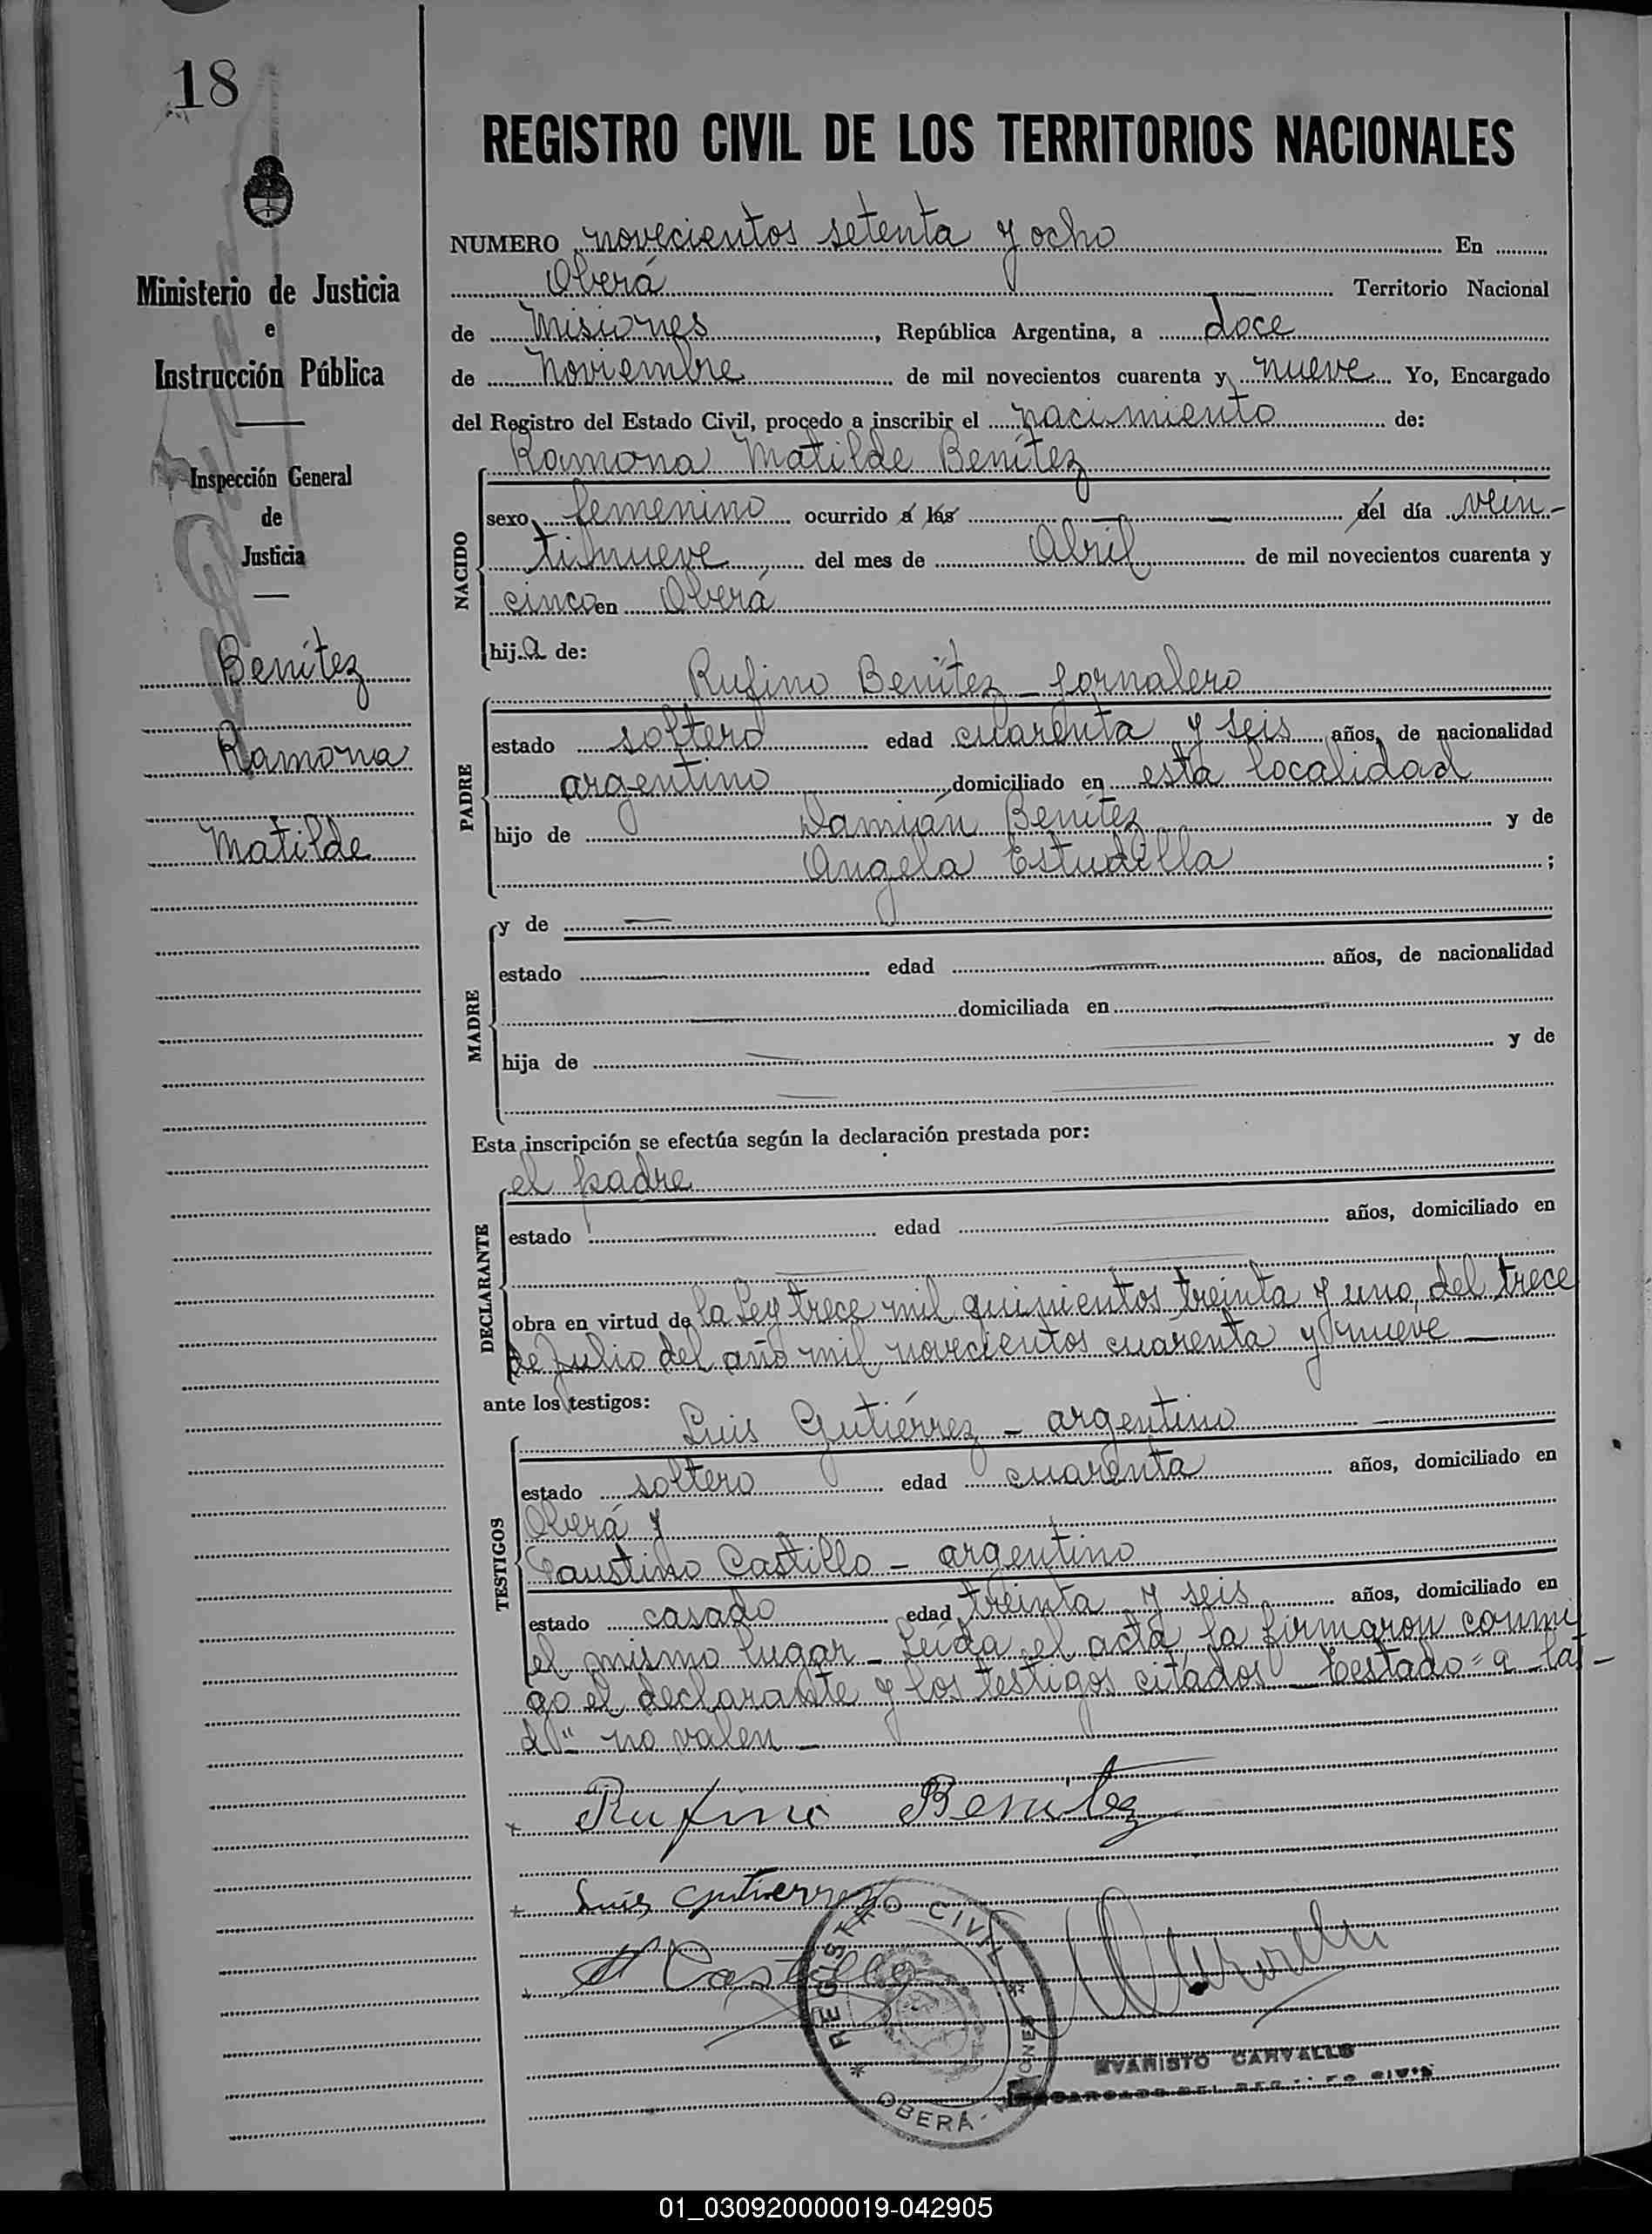 18
Ministerio de Justicia
e
Instrucción Pública
Inspección General
de
Justicia
Benítez
Ramona
Matilde
REGISTRO CIVIL DE LOS TERRITORIOS NACIONALES
NUMERO novecientos setenta y ocho En
Oberá Territorio Nacional
de Misiones, República Argentina, a doce
de Noviembre de mil novecientos cuarenta y nueve Yo, Encargado
del Registro del Estado Civil, procedo a inscribir el nacimiento de:
Ramona Matilde Benítez
NACIDO
sexo femenino ocurrido a las del día vein-
tinueve del mes de Abril de mil novecientos cuarenta y
cinco en Oberá
hija de:
PADRE
Rufino Benítez - jornalero
estado soltero edad cuarenta y seis años, de nacionalidad
argentino domiciliado en esta localidad
hijo de Damián Benítez y de
Angela Estudilla ;
MADRE
y de
estado edad años, de nacionalidad
domiciliada en
hija de y de
Esta inscripción se efectúa según la declaración prestada por:
DECLARANTE
el padre
estado edad años, domiciliado en
obra en virtud de la Ley trece mil quinientos treinta y uno, del trece
de Julio del año mil novecientos cuarenta y nueve
ante los testigos:
TESTIGOS
Luis Gutiérrez - argentino
estado soltero edad cuarenta años, domiciliado en
Oberá y
Faustino Castillo - argentino
estado casado edad treinta y seis años, domiciliado en
el mismo lugar - Leída el acta la firmaron conmi
go el declarante y los testigos citados - Testado = a las -
d" no valen -
Rufino Benitez
Luis Gutierrez
Castillo
REGISTRO CIVIL
OBERÁ - MISIONES
EVARISTO CARVALLO
ENCARGADO DEL REGISTRO CIVIL
01_030920000019-042905